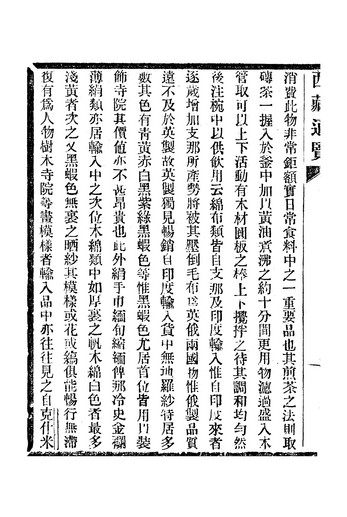 西藏通覽
消費此物非常鉅額實日常食料中之一重要品也其煎茶之法則取
磚茶一握入於釜中加以黃油煮沸之約十分間更用物濾過盛入木
管取可以上下活動有木材圓板之棒上下攪拌之待其調和均勻然
後注椀中以供飲用云綿布類皆自支那及印度輸入惟自印度來者
逐歲增加支那所產勢將被其壓倒毛布爲英俄兩國物惟俄製品質
遠不及於英製故英製獨見暢銷自印度輸入貨中無地羅紗特居多
數其色有靑黃赤白黑紫綠黑蝦色等惟黑蝦色尤居首位皆用以裝
飾寺院其價値亦不甚昂貴也此外絹手巾緬甸縮緬俾那冷史金襴
薄絹類亦居輸入中之次位木綿類中如厚裏之帆木綿白色者最多
淺黃者次之又黑蝦色無裏之晒紗其模樣或花或縞俱能暢行無滯
復有爲人物樹木寺院等畫模樣者輸入品中亦往往見之自克什米